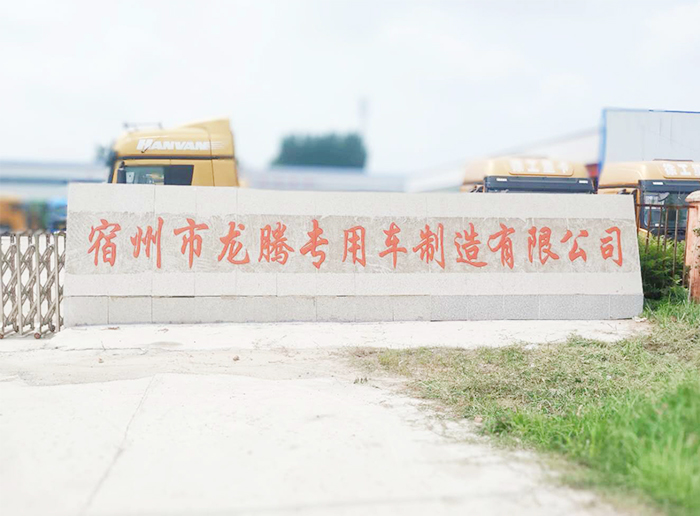 HANVAN
宿州市龙腾专用车制造有限公司